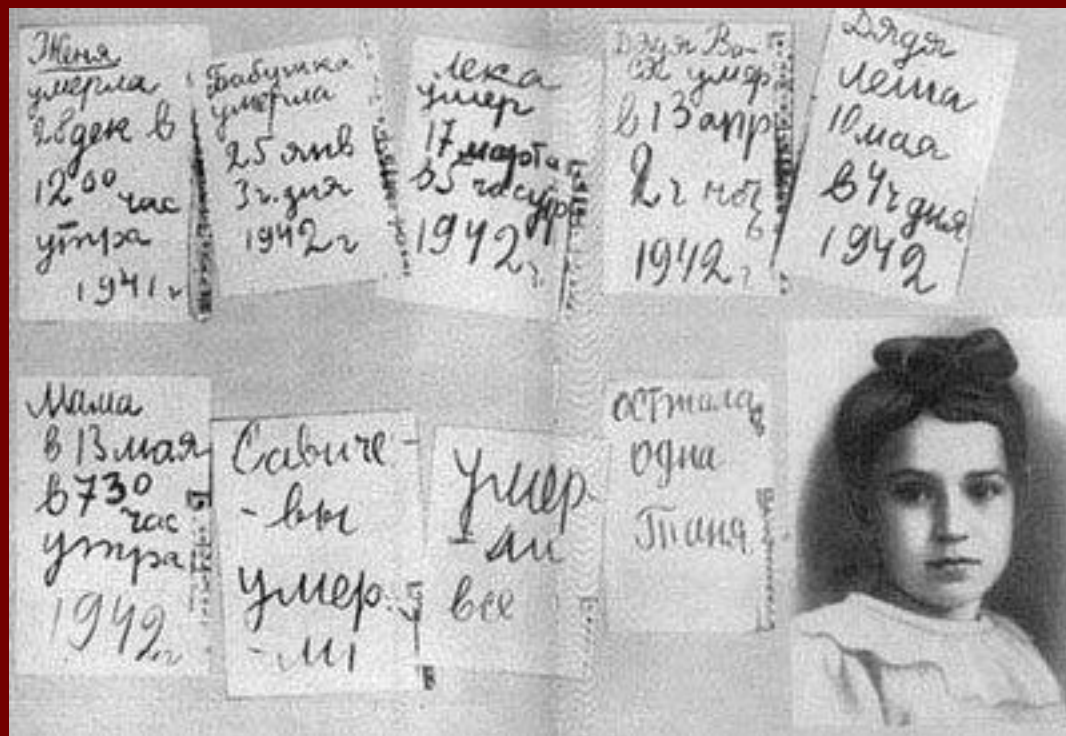 Женя
умерла
28 дек в
12 00 час
утра
1941 г
Бабушка
умерла
25 янв
3 ч. дня
1942 г
Лека
умер
17 марта
в 5 час утр
1942 г.
Дядя Ва-
ся умер
в 13 апр
2 ч ноч
ь
1942 г
Дядя
Леша
10 мая
в 4 ч дня
1942
Мама
в 13 мая
в 7 30
час
утра
1942 г
Савиче-
-вы
умер.
-ли
Умер
-ли
все
Осталась
одна
Таня